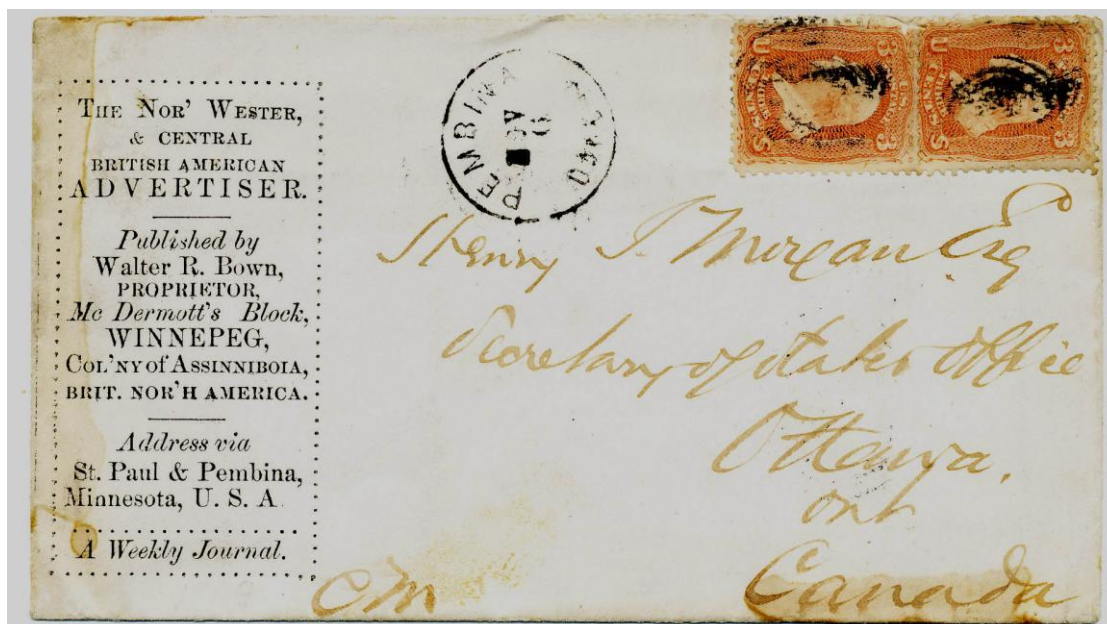 THE NOR' WESTER,
& CENTRAL
BRITISH AMERICAN
ADVERTISER.
Published by
Walter R. Bown,
PROPRIETOR,
Mc Dermott's Block,
WINNEPEG,
COL'NY of ASSINNIBOIA,
BRIT. NOR'H AMERICA.
Address via
St. Paul & Pembina,
Minnesota, U. S. A
A Weekly Journal.
PEMBINA
NOV
U 3 3 S
U 3 3 S
Henry J. Morgan Esq
Secretary of States Office
Ottawa.
Ont
Canada
CM